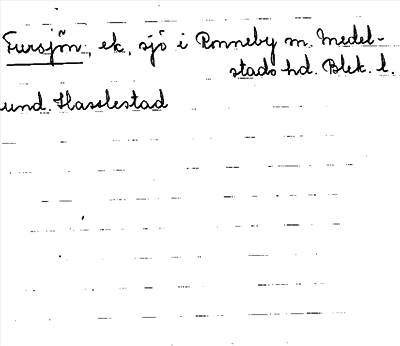 Fursjön, ek, sjö i Ronneby m. Medel-
stads hd. Blek. l.
und. Hasslestad